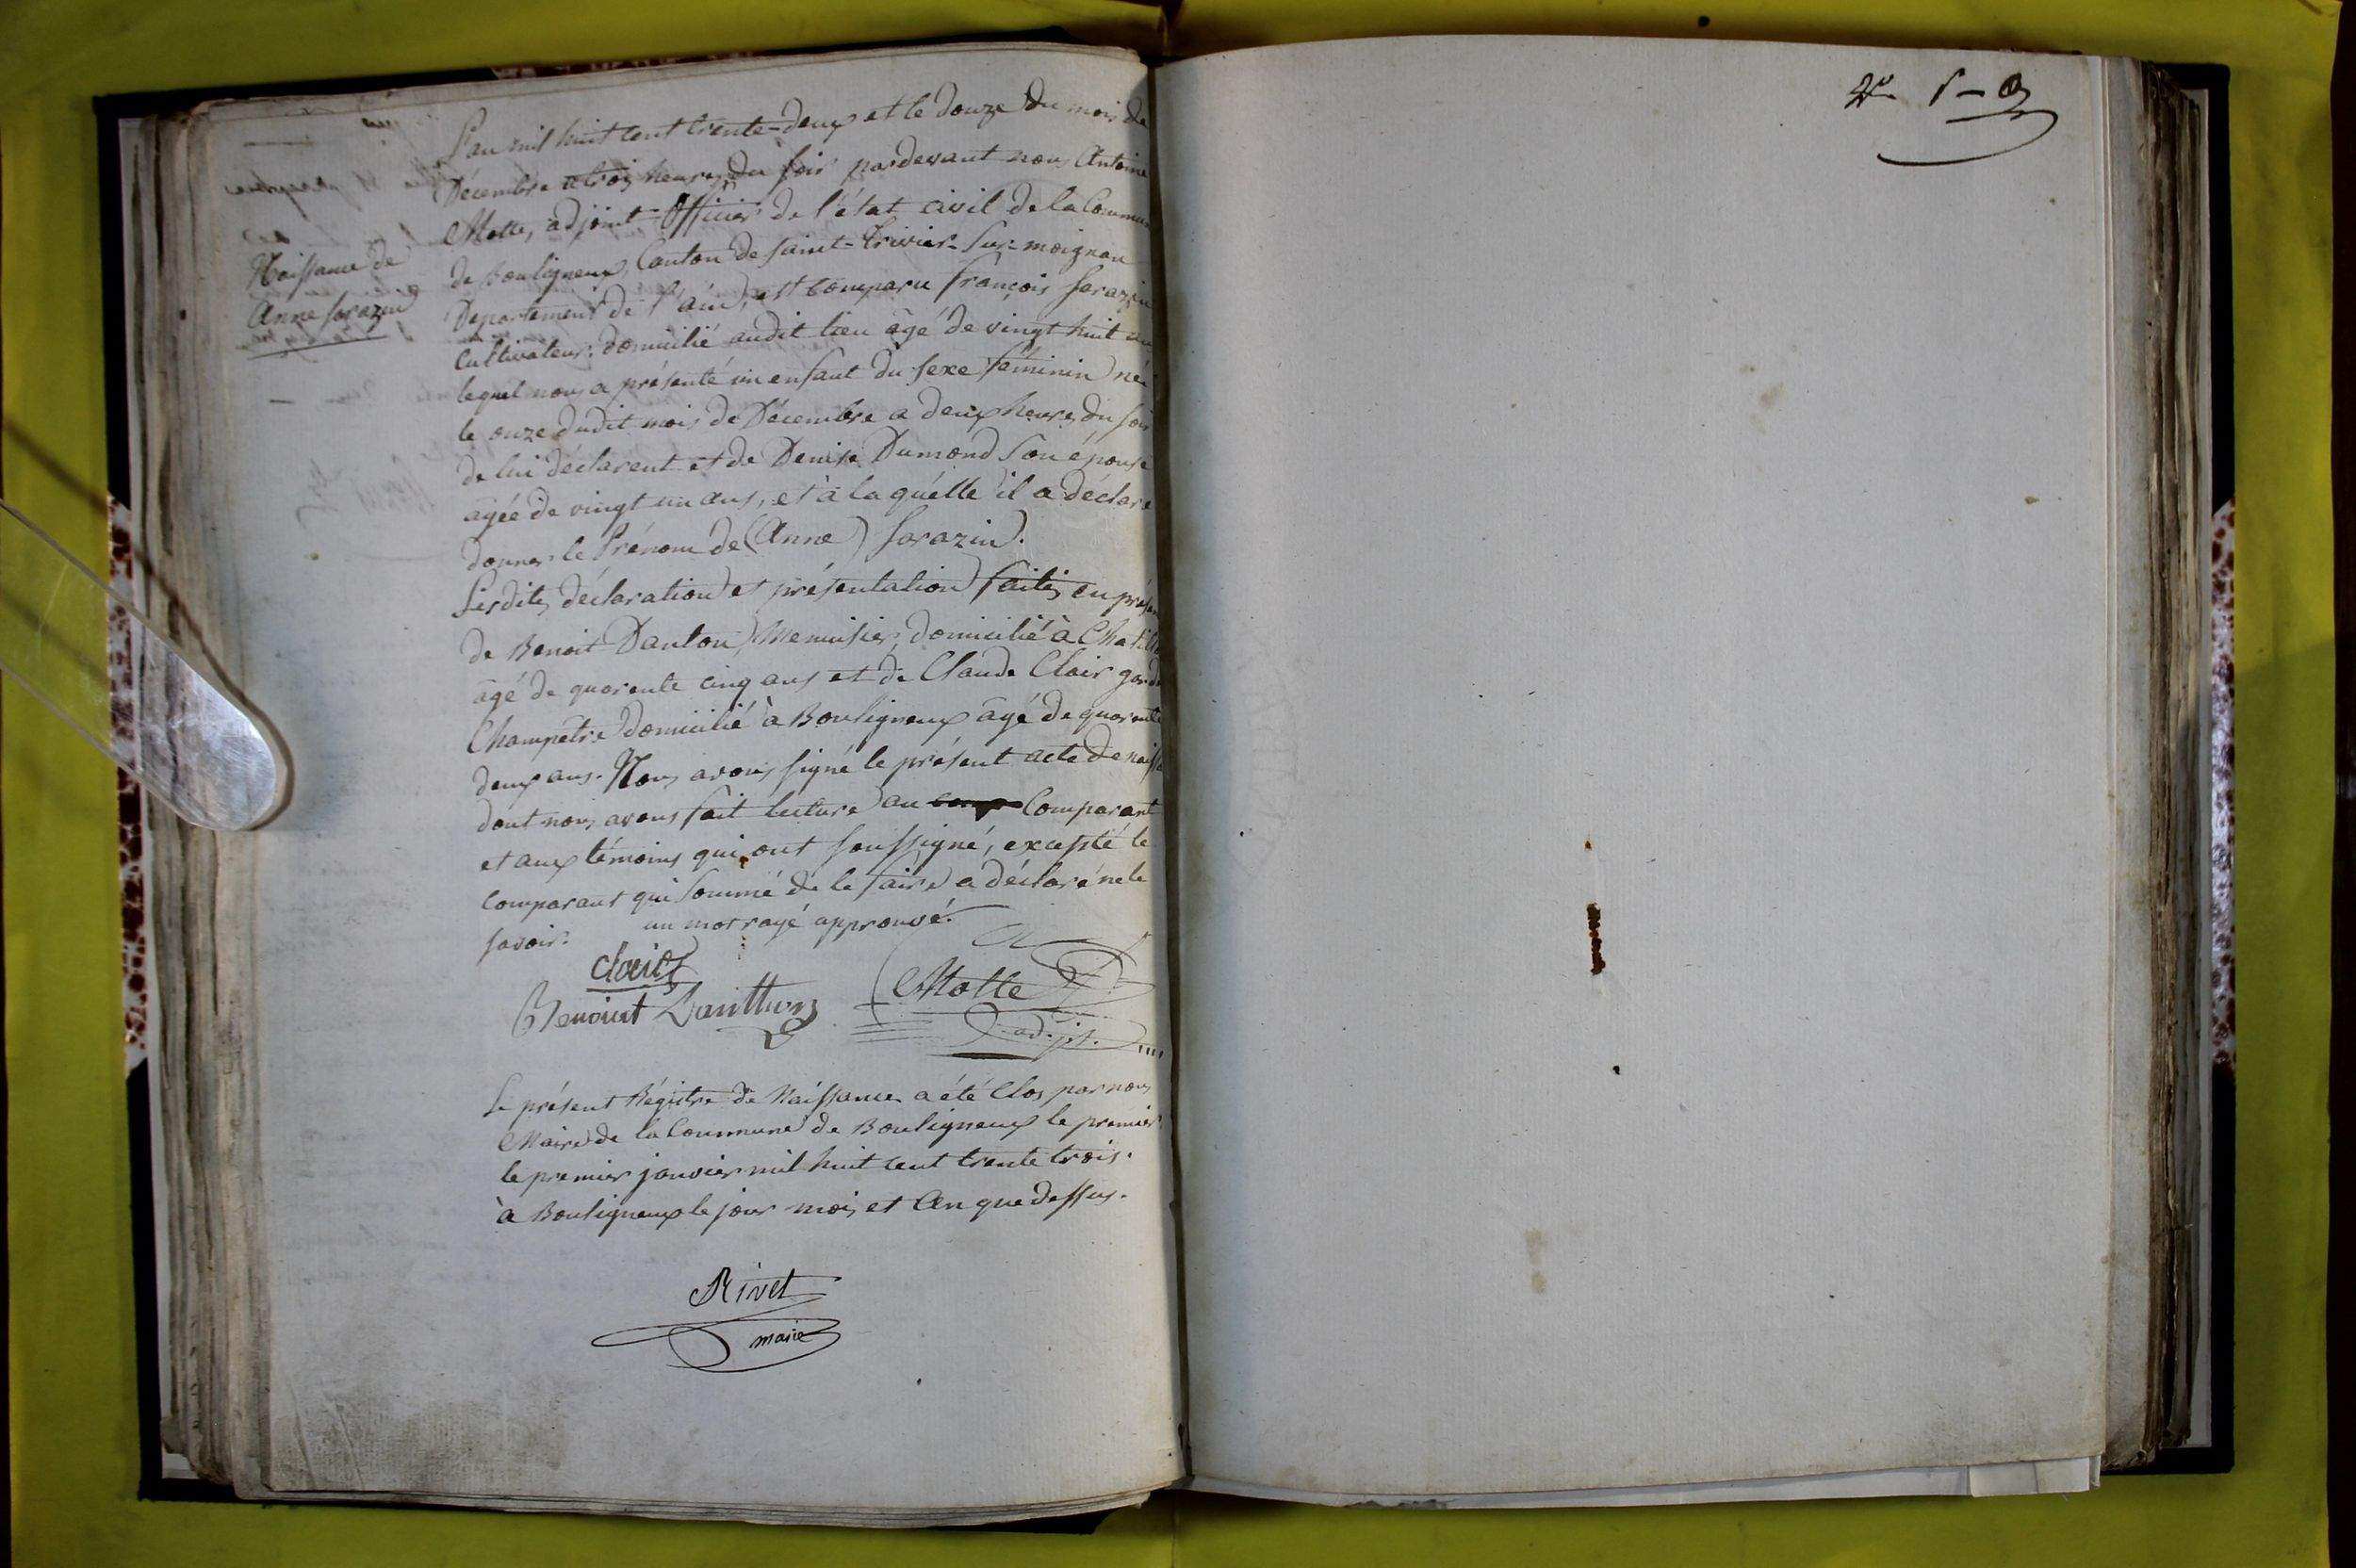 Naissance de
Anne Sarazin
L'an mil huit cent trente-deux et le douze du mois de
Décembre a trois heures du soir pardevant nous Antoine
Motte, adjoint Officier de l'état civil de la Commun
de Bouligneux, Canton de Saint-Trivier-sur-moignan
Departement de l'ain, est comparu françois Sarazin
Cultivateur, domicilié audit lieu âgé de vingt huit an
lequel nous a présenté un enfant du sexe féminin né
le onze dudit mois de Décembre a deux heures du soir
de lui déclarent et de Denise Dumond son épouse
âgée de vingt un ans, et à laquélle il a déclaré
donner le Prénom de (Anne) Sarazin.
Lesdites déclaration et présentation faites en présen
de Benoit Danton, Menuisier, domicilié à Chatillo
âgé de quarente cinq ans et de Claude Clair garde
Champêtre domicilié à Bouligneux âgé de quarente
deux ans. Nous avons signé le présent acte de naiss
dont nous avons fait lecture au Comparant
et aux témoins qui ont soussigné, excepté le
Comparant qui sommé de le faire a déclaré ne le
savoir. un mot rayé approuvé.
Clair
Benoiut Dantton Motte
adjt.
Le présent Régistre de Naissances a été Clos par nous
Maire de la Commune de Bouligneux le premier
le premier janvier mil huit cent trente trois.
à Bouligneux le jour mois et An que dessus.
Rivet
maire